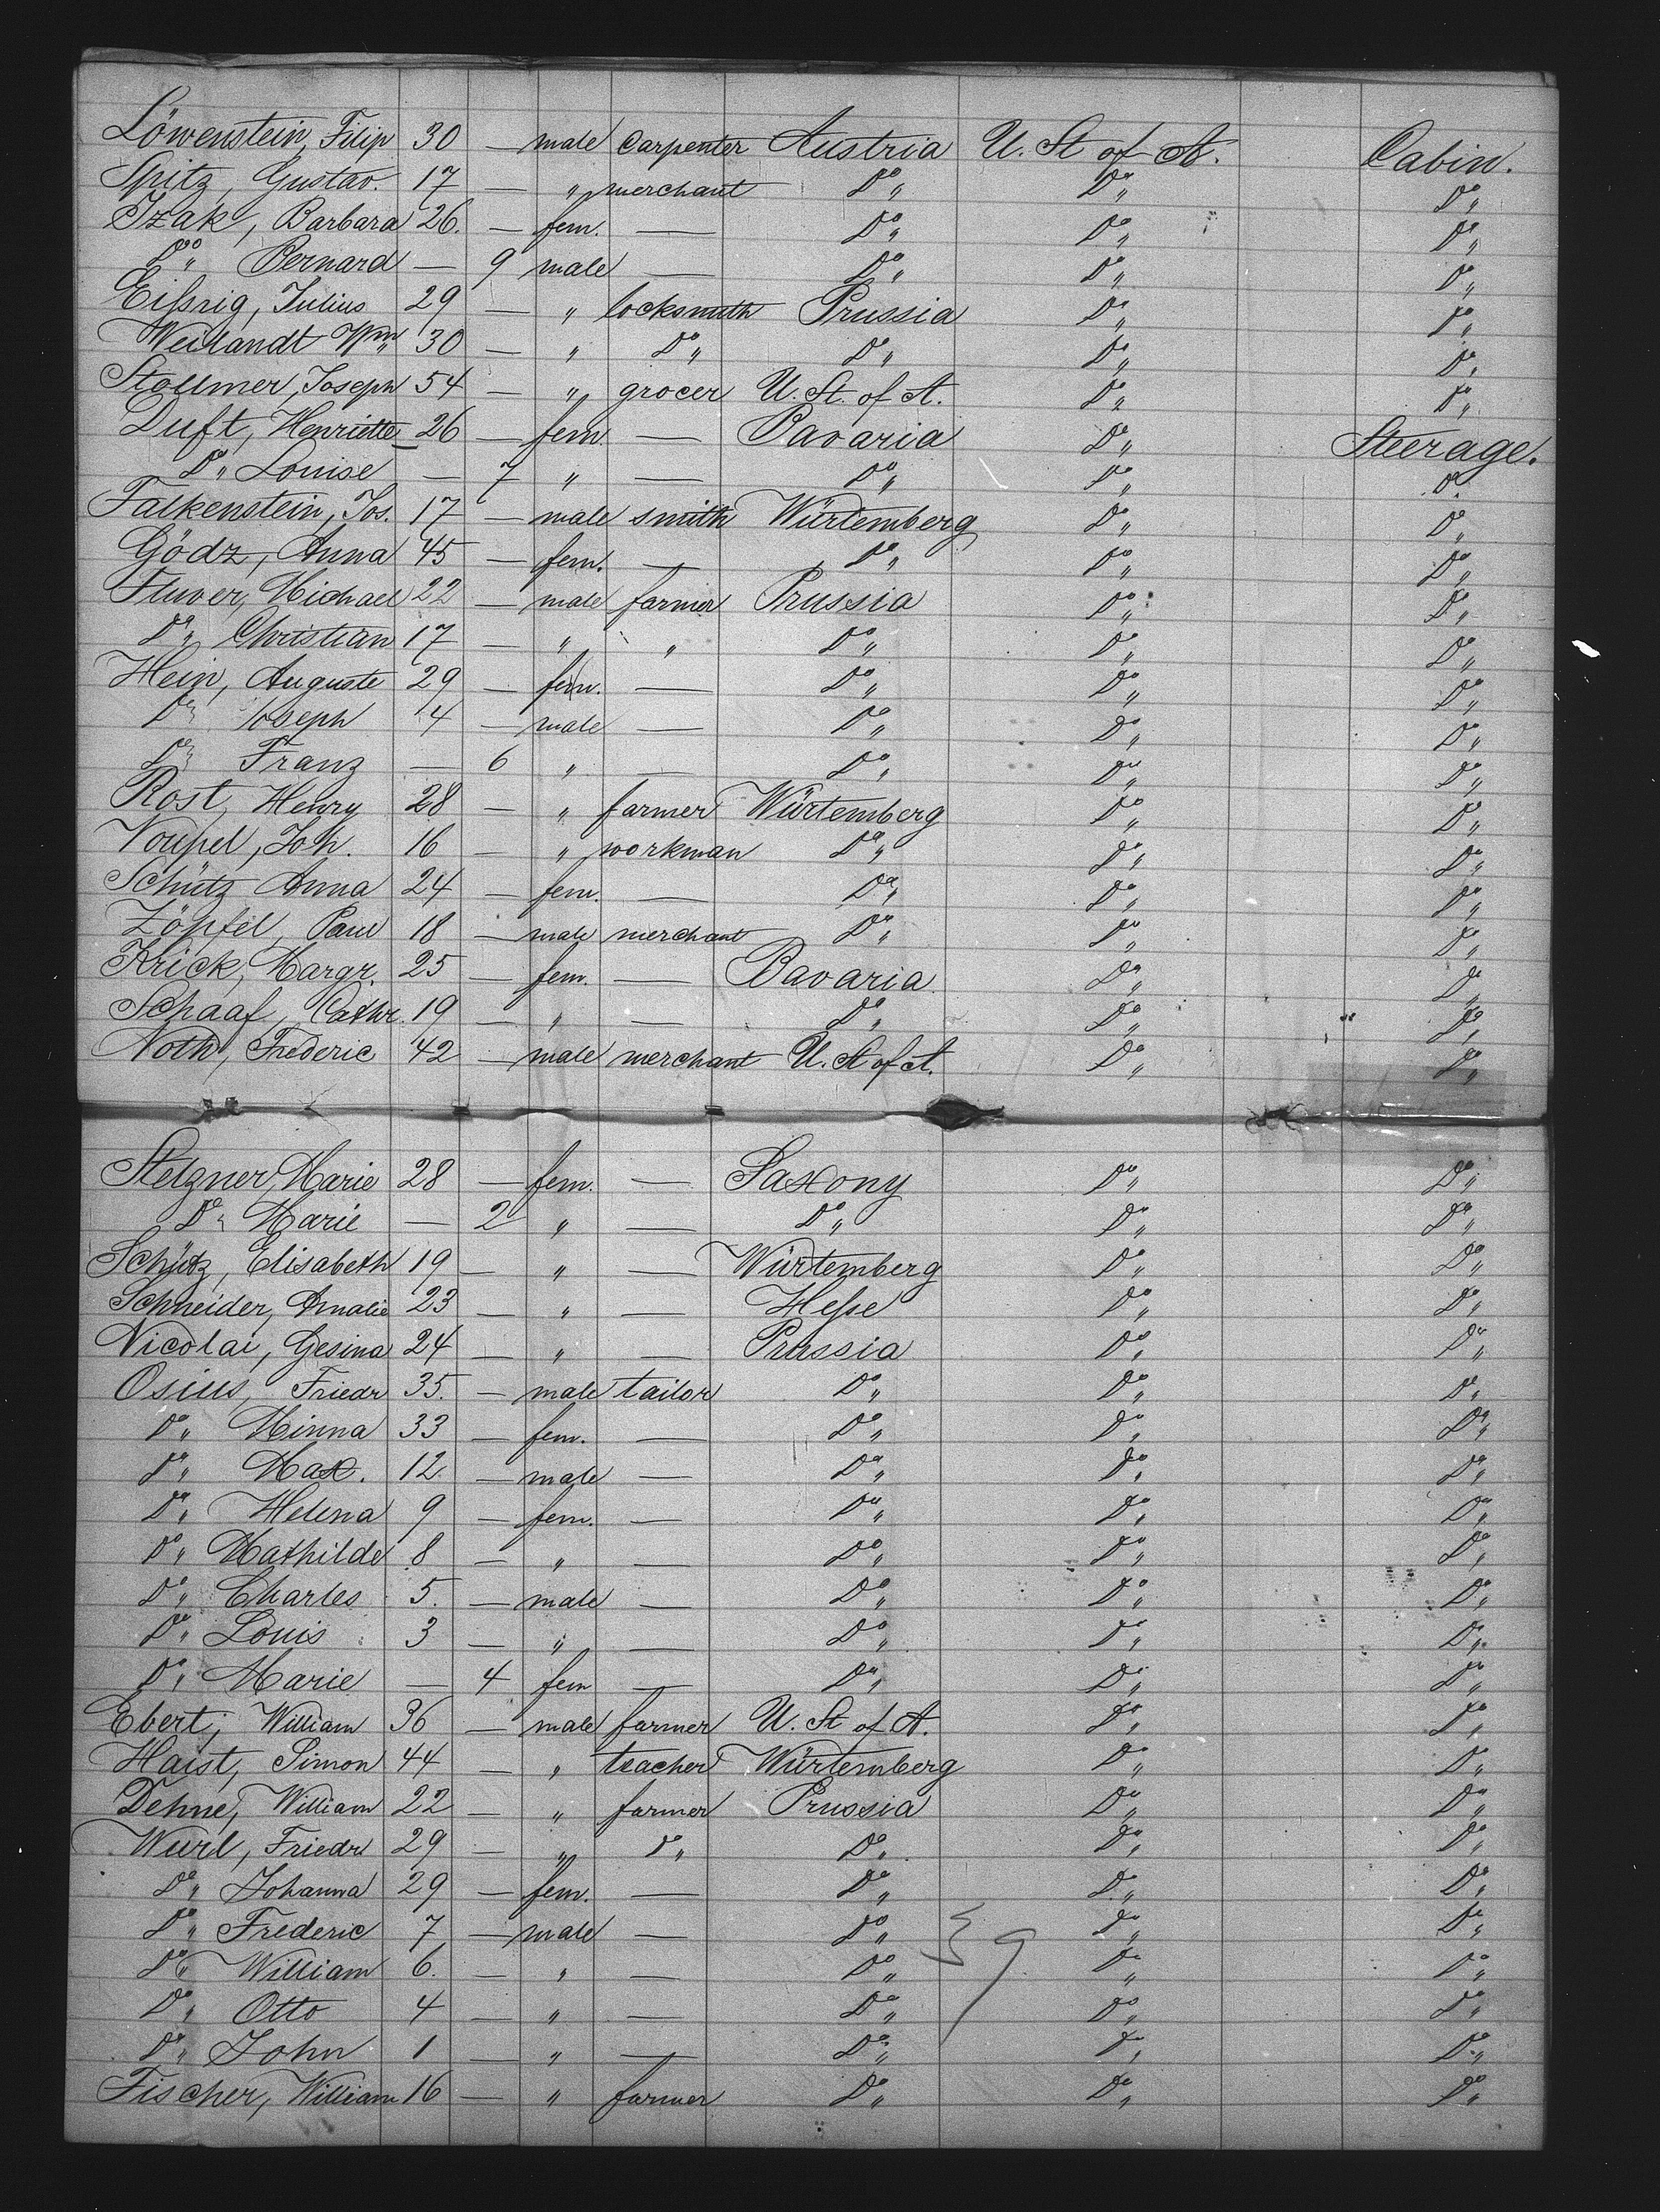 Löwenstein, Filip 30 — male Carpenter Austria U. St of A. Cabin.
Spitz, Gustav. 17 — " merchant Do" Do" Do"
Izak, Barbara 26. — fem. — Do" Do" Do"
Do" Bernard — 9 male — Do" Do" Do"
Eißrig, Julius 29 — " locksmith Prussia Do" Do"
Weilandt Wm 30 — " Do" Do" Do" Do"
Stollmer, Joseph 54 — " grocer U. St. of A. Do" Do"
Duft, Henriette 26 — fem — Bavaria Do" Steerage.
Do" Louise — 7 " — Do" Do" Do
Falkenstein, Jos. 17 — male smith Würtemberg Do" Do"
Gödz, Anna 45 — fem. — Do" Do" Do"
Michael 22 — male farmer Prussia Do" Do"
Do" Christian 17 — " " Do" Do" Do"
Hein, Auguste 29 — fem. — Do" Do" Do"
Do" Joseph 4 — male — Do" Do" Do"
Do" Franz — 6 " — Do" Do" Do"
Rost, Henry 28 — " farmer Würtemberg Do" Do"
Voupel, Joh. 16 — " workman Do" Do" Do"
Schütz Anna 24 — fem. — Do" Do" Do"
Zöpfel, Paul 18 — male merchant Do" Do" Do"
Krick, Margr. 25 — fem. — Bavaria Do" Do"
Schaaf, Cathr. 19 — " — Do" Do" Do"
Noth, Frederic 42 — male merchant U. St of A. Do" Do"
Stelzner, Marie 28 — fem. — Saxony Do" Do"
Do" Marie — 2 " — Do" Do" Do"
Schütz, Elisabeth 19 — " — Würtemberg Do" Do"
Schneider, Amalie 23 — " — Heße Do" Do"
Nicolai, Gesina 24 — " — Prussia Do" Do"
Osius, Friedr 35. — male tailor Do" Do" Do"
Do" Minna 33 — fem. — Do" Do" Do"
Do" Max. 12 — male — Do" Do" Do"
Do" Helena 9 — fem. — Do" Do" Do"
Do" Mathilde 8 — " — Do" Do" Do"
Do" Charles 5. — male — Do" Do" Do"
Do" Louis 3 — " — Do" Do" Do"
Do" Marie — 4 fem — Do" Do" Do"
Ebert, William 36 — male farmer U. St of A. Do" Do"
Haist, Simon 44 — " teacher Würtemberg Do" Do"
Dehne, William 22 — " farmer Prussia Do" Do"
Wurl, Friedr 29 — " Do" Do" Do" Do"
Do" Johanna 29 — fem. — Do" Do" Do"
Do" Frederic 7 — male — Do" Do" Do"
Do" William 6. — " — Do" 39 Do" Do"
Do" Otto 4 — " — Do" Do" Do"
Do" John 1 — " — Do" Do" Do"
Fischer, William 16 — " farmer Do" Do" Do"